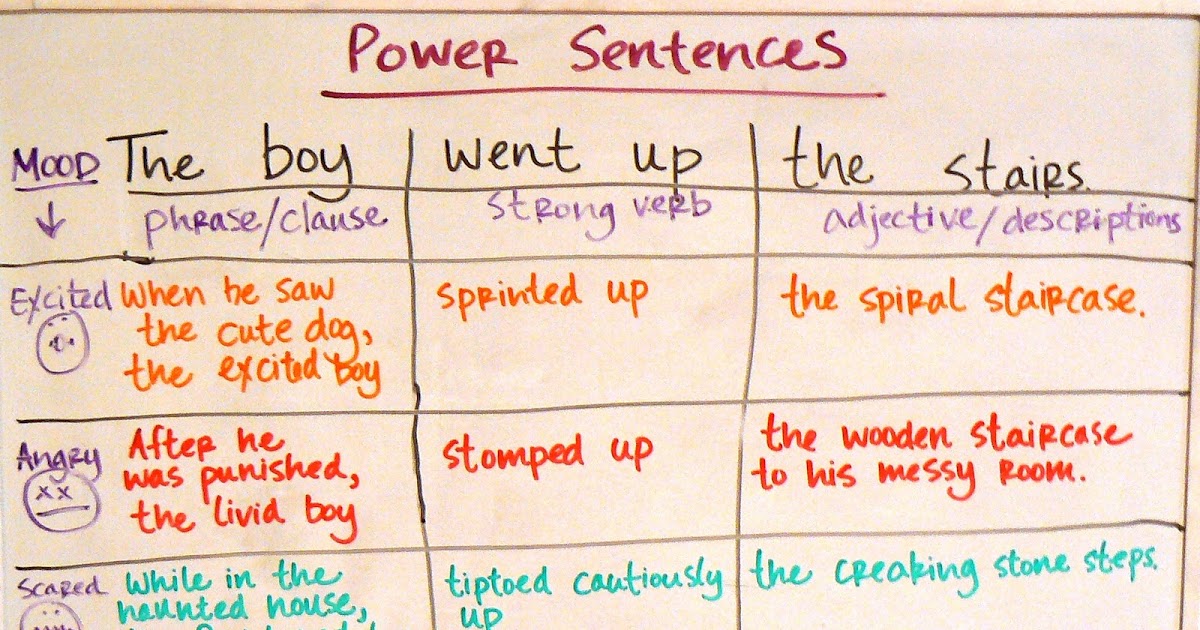 Power Sentences
Mood The boy went up the stairs.
phrase/clause strong verb adjective/descriptions
Excited When he saw sprinted up the spiral staircase.
the cute dog,
the excited boy
Angry After he stomped up the wooden staircase
was punished, to his messy room.
the livid boy
Scared While in the tiptoed cautiously the creaking stone steps.
haunted house, up